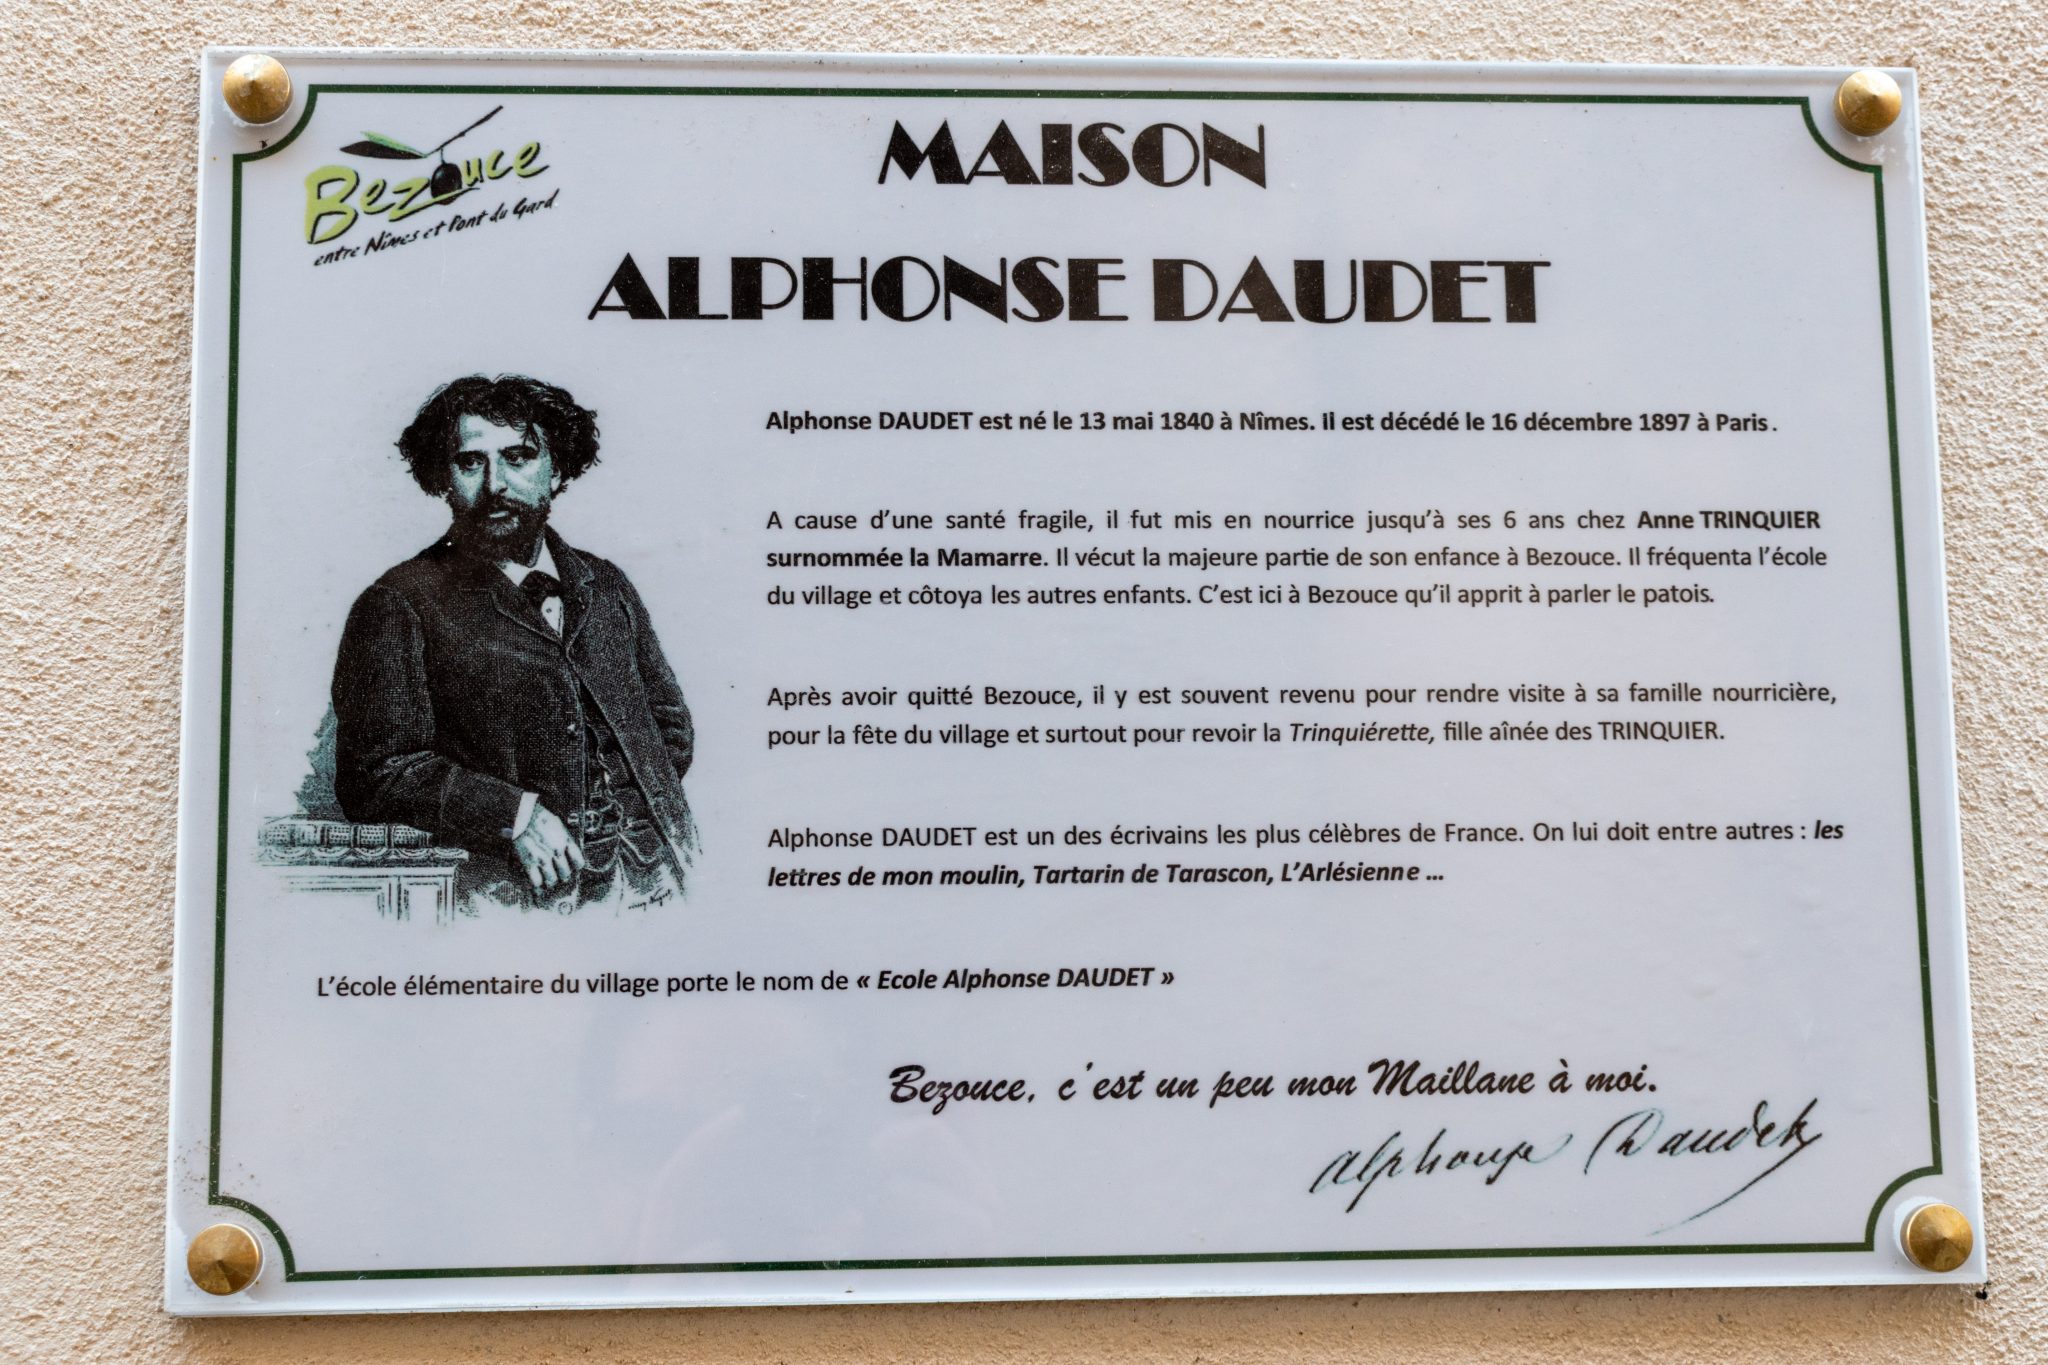 Bezouce
entre Nîmes et Pont du Gard
MAISON
ALPHONSE DAUDET
Alphonse DAUDET est né le 13 mai 1840 à Nîmes. il est décédé le 16 décembre 1897 à Paris.
A cause d’une santé fragile, il fut mis en nourrice jusqu’à ses 6 ans chez Anne TRINQUIER
surnommée la Mamarre. Il vécut la majeure partie de son enfance à Bezouce. Il fréquenta l’école
du village et côtoya les autres enfants. C’est ici à Bezouce qu’il apprit à parler le patois.
Après avoir quitté Bezouce, il y est souvent revenu pour rendre visite à sa famille nourricière,
pour la fête du village et surtout pour revoir la Trinquiérette, fille aînée des TRINQUIER.
Alphonse DAUDET est un des écrivains les plus célèbres de France. On lui doit entre autres : les
lettres de mon moulin, Tartarin de Tarascon, L’Arlésienne ...
L’école élémentaire du village porte le nom de « Ecole Alphonse DAUDET »
Bezouce, c’est un peu mon Maillane à moi.
Alphonse Daudet